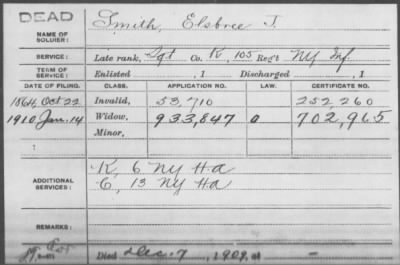 DEAD
NAME OF SOLDIER: Smith, Elsbree J.
SERVICE: Late rank, Sgt Co. K, 105 Reg't NY Inf
TERM OF SERVICE: Enlisted , 1 Discharged , 1
DATE OF FILING. CLASS. APPLICATION NO. LAW. CERTIFICATE NO.
1864, Oct 22 Invalid, 53,710 252,260
1910 Jan. 14 Widow, 933,847 a 702,965
Minor,
ADDITIONAL SERVICES: K, 6 NY Ha
C, 13 NY Ha
REMARKS:
Died Dec. 7, 1909, at —